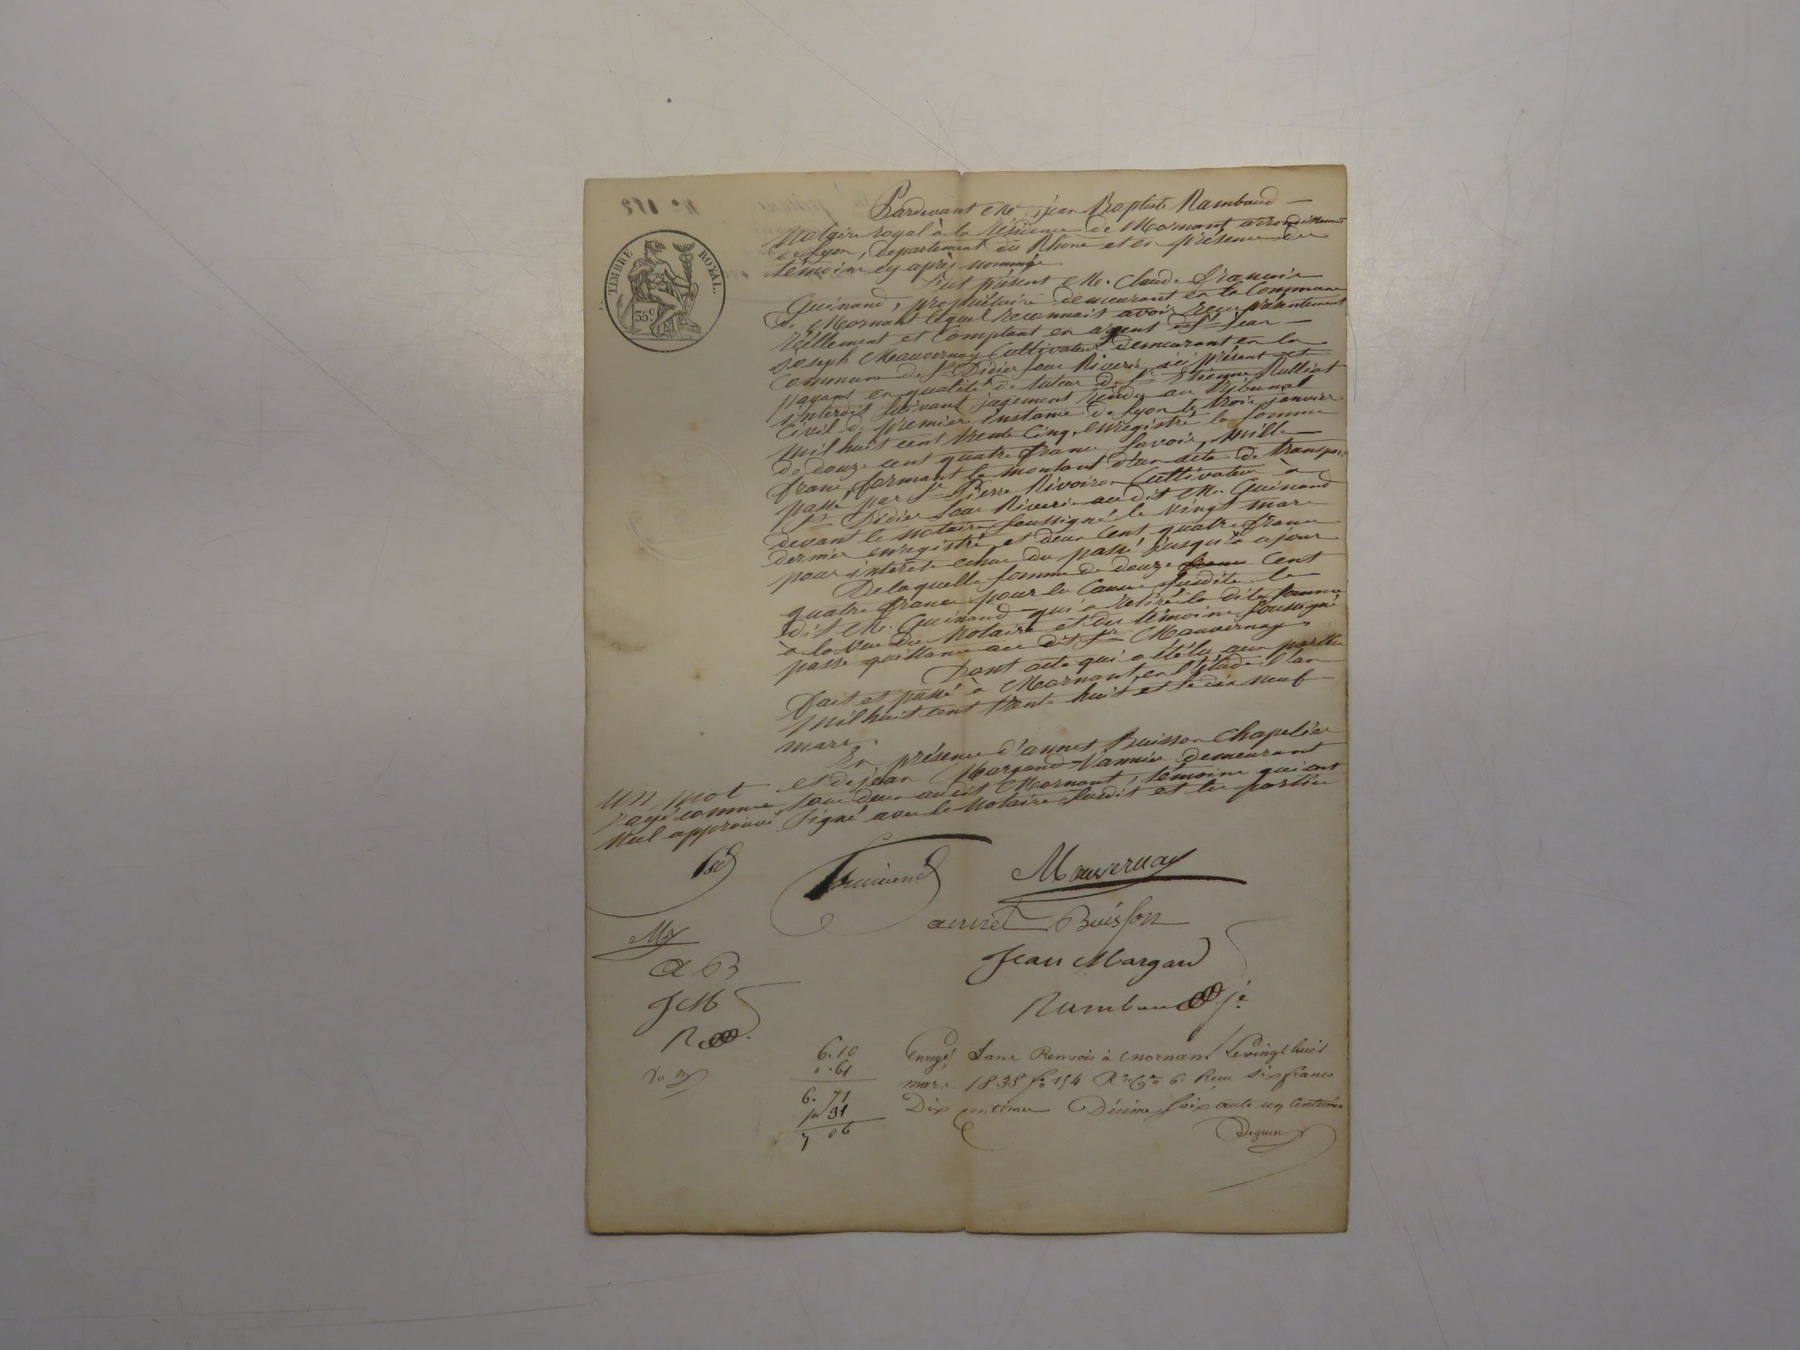 TIMBRE ROYAL.
35 c
Pardevant Me Jean Baptiste Rambaud
Notaire royal à la résidence de Mornant arrondissement
de Lyon, département du Rhône et en présence des
témoins cy après nommés
fut présent Mr. Claude François
Guinand, propriétaire demeurant en la Commune
de Mornant lequel reconnait avoir reçu présentement
réellement et Comptant en argent de Sr Jean
Joseph Mauvernay Cultivateur demeurant en la
Commune de St Didier sous Riverie ici présent et
payant en qualité de tuteur de Sr Etienne Rulliat
interdit suivant jugement rendu au tribunal
Civil de première instance de Lyon le trois janvier
mil huit cent trente Cinq, enregistré la Somme
de douze cent quatre francs Savoir, mille
francs formant le montant d'un acte de transport
passé par Sr Pierre Rivoiron Cultivateur à
St Didier sous Riverie au dit Mr. Guinand
devant le notaire soussigné le vingt mars
dernier enregistré, et deux Cent quatre francs
pour intérêts échus du passé jusqu'à ce jour
De laquelle somme de douze francs Cent
quatre francs pour la Cause susdite le
dit Mr. Guinand qui a retiré la dite Somme
à la vue du Notaire et des témoins soussignés
passe quittance au dit Sr Mauvernay,
Dont acte qui a été lu aux parties
fait et passé à Mornant, en l'étude l'an
mil huit cent trente huit et le dix neuf
mars.
En présence d'annet Buisson Chapelier
et de jean Margand Vannier demeurant
un mot
rayé comme tous deux audit Mornant, témoins qui ont
Nul approuvé Signé avec le Notaire susdit et les parties
Guinand
Mauvernay
annet Buisson
My
AB
Jean Margand
JM
Rambaud
R
6. 10
. 61
6. 71
35
7 06
Enregé Sans Renvois à Mornant Le vingt huit
mars 1838 fo 154 Ro Ce 6. Reçu six francs
Dix centimes Décime soixante un Centimes